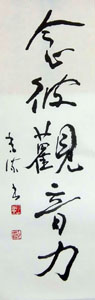 念彼觀音力